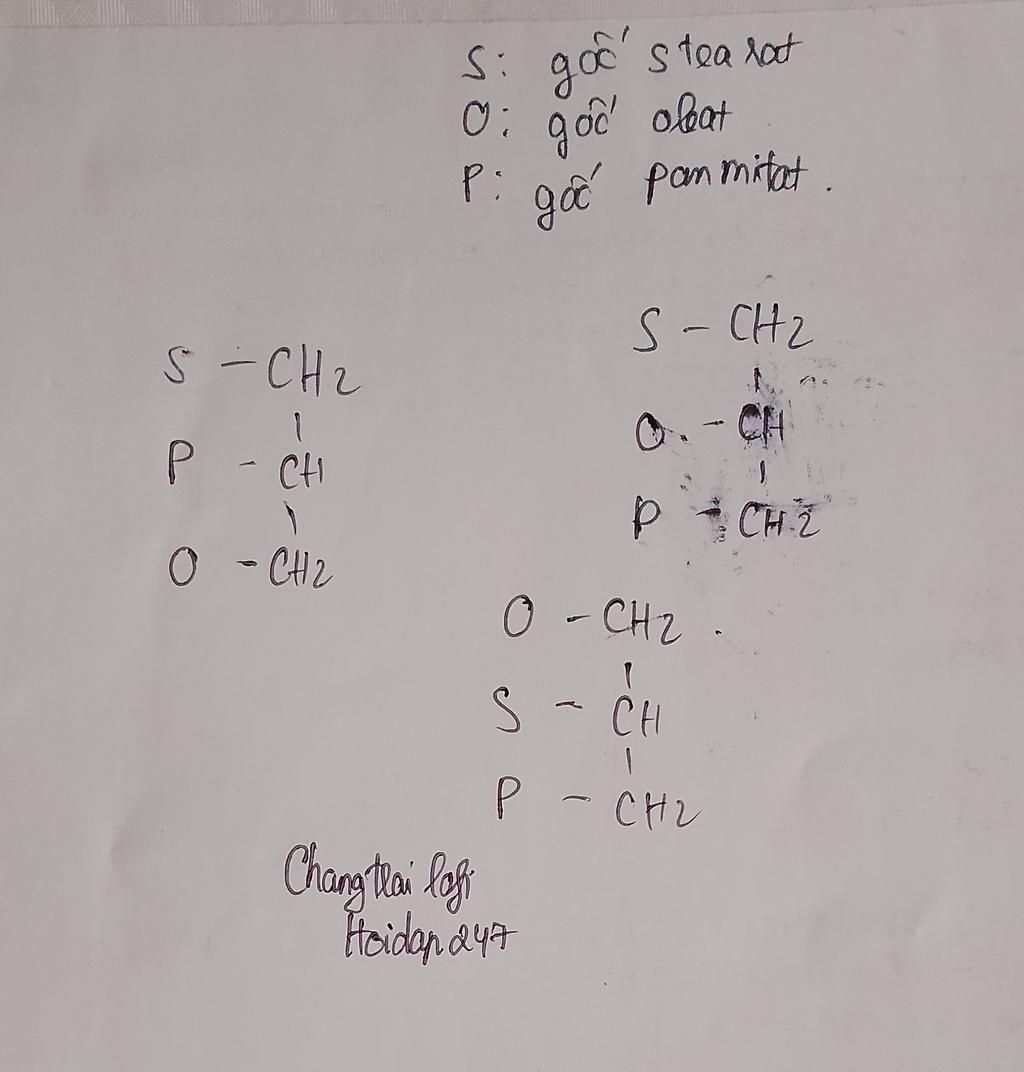 S: gốc stearat
O: gốc oleat
P: gốc panmitat.
S - CH2
P - CH
O - CH2
S - CH2
O - CH
P - CH2
O - CH2
S - CH
P - CH2
Changtrai
Hoidap247